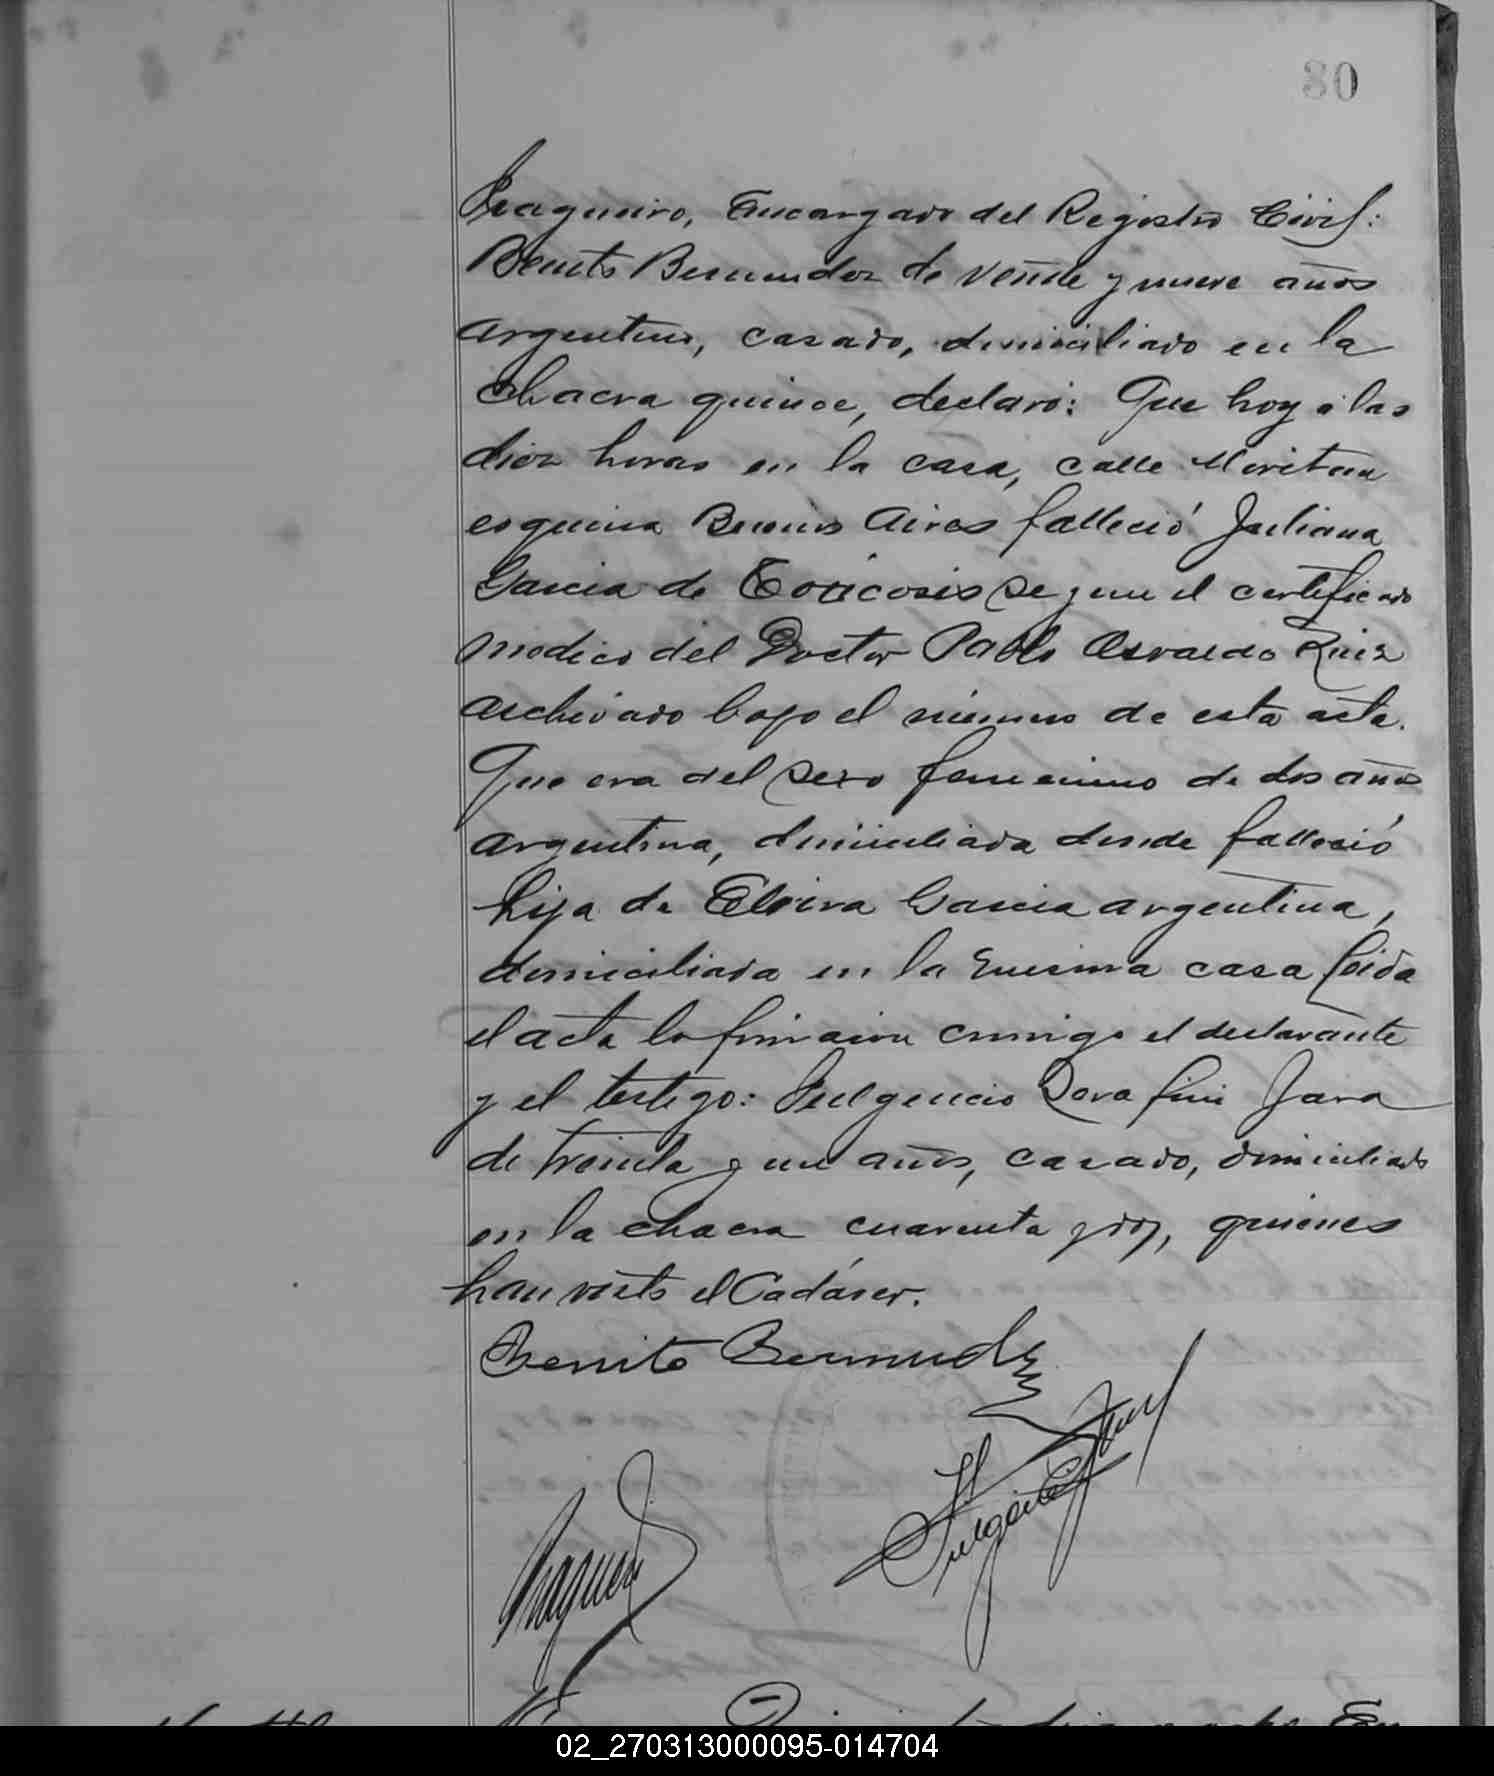 80
Fragueiro, Encargado del Registro Civil:
Benito Bermudez de veinte y nueve años
argentino, casado, domiciliado en la
chacra quince, declaró: Que hoy á las
diez horas en la casa, calle
esquina Buenos Aires falleció Juliana
Garcia de Toxicosis segun el certificado
medico del Doctor Pablo Osvaldo Ruiz
archivado bajo el número de esta acta.
Que era del sexo femenino de dos años
argentina, domiciliada donde falleció
hija de Elvira Garcia argentina,
domiciliada en la misma casa Leida
el acta la firmaron conmigo el declarante
y el testigo: Fulgencio Serafin Jara
de treinta y un años, casado, domiciliado
en la chacra cuarenta y dos, quienes
han visto el Cadáver.
Benito Bermudez
02_270313000095-014704